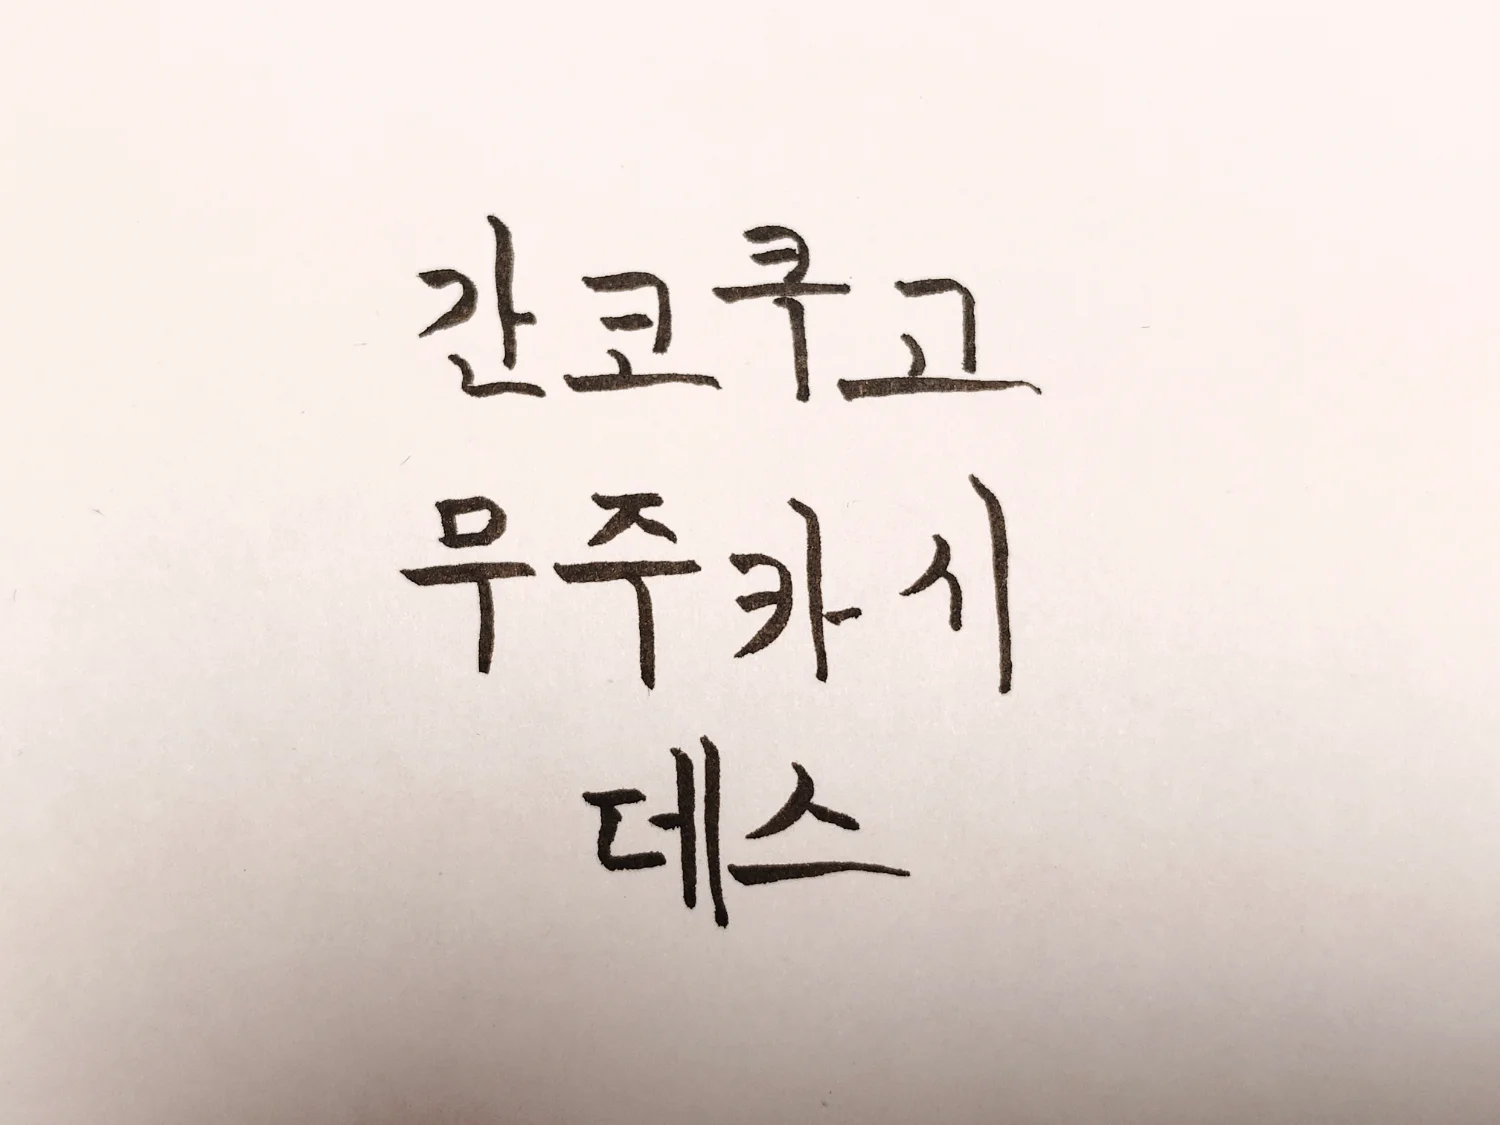 간코쿠고
무주카시
데스